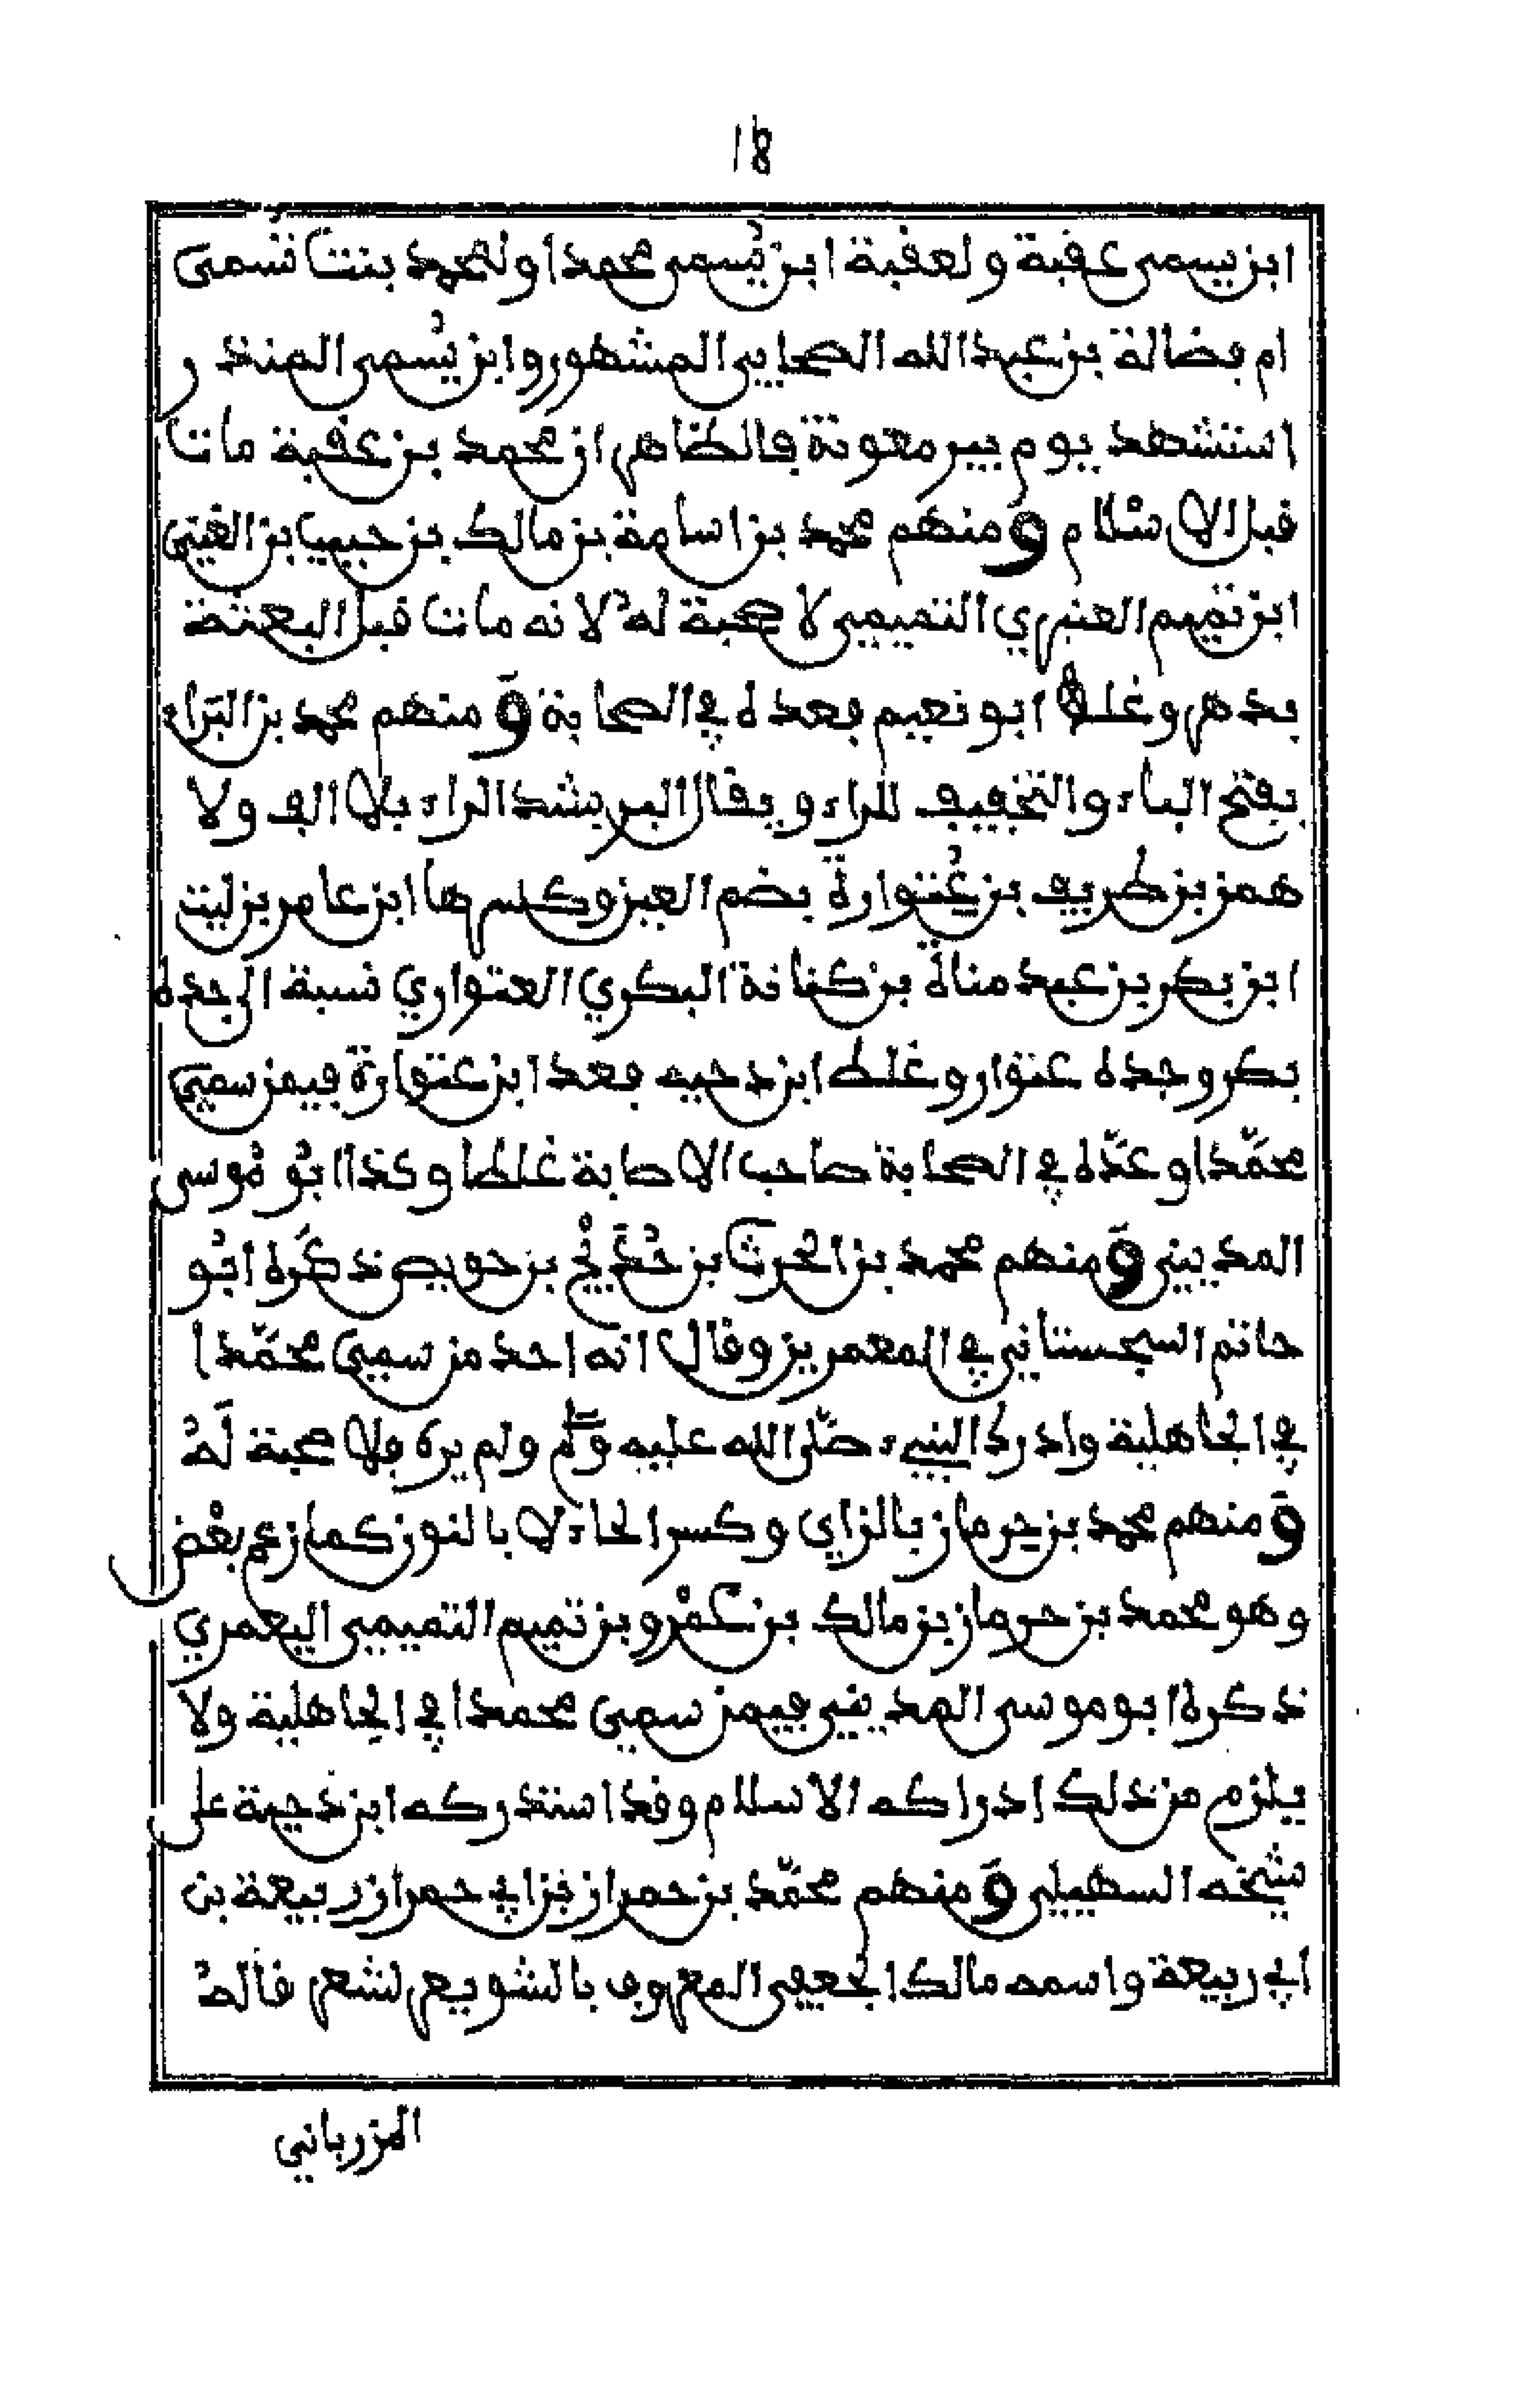 18
ابن يسمى عقبة ولعقبة ابن يُسمى محمدا ولمحمد بنت تسمى
ام فضالة بن عبد الله الصحابي المشهور وابن يُسمى المنذر
استشهد يوم بير معونة فالظاهر ان محمد بن عقبة مات
قبل الاسلام ومنهم محمد بن اسامة بن مالك بن حبيب بن
ابن تميم العنبري التميمي لا صحبة لهُ لانه مات قبل البعثة
بدهر وغلط ابو نعيم فعده في الصحابة وَمنهم محمد بن البَراء
بفتح الباء والتخفيف للراء ويقال البر بشد الراء بلا الف ولا
همز بن طريف بن عُتوارة بضم العين وكسرها ابن عامر بن ليث
ابن بكر بن عبد مناة بن كنانة البكري العتواري نسبة الى جده
بكر وجده عتوار وغلط ابن دحيه فعد ابن عتوارة فيمن سمي
محمَّدا وعدَّه في الصحابة صاحب الاصابة غلطا وكذا ابُو مُوسى
المديني وَمنهم محمد بن الحرث بن حُدَيْج بن حويص ذكَره ابُو
حاتم السجستاني في المعمرين وقال انه احد من سمي محمَّدا
في الجاهلية وادرك النبيء صلّى الله عليه وسلم ولم يره فلا صحبة لَهُ
وَمنهم محمد بن حِرماز بالزاي وكسر الحاء لا بالنون كما زعم بعْض
وهو محمد بن حرماز بن مالك بن عَمْرو بن تميم التميمي اليعمري
ذكره ابو موسى المديني فيمن سمي محمدا في الجاهلية ولا
يلزم من ذلك ادراكه الاسلام وقد استدركه ابن دحية على
شيخه السهيلي وَمنهم محمَّد بن حمران بن ابي حمران ربيعة بن
ابي ربيعة واسمه مالك الجعفي المعروف بالشويعر لشعر قالهُ
المزرباني